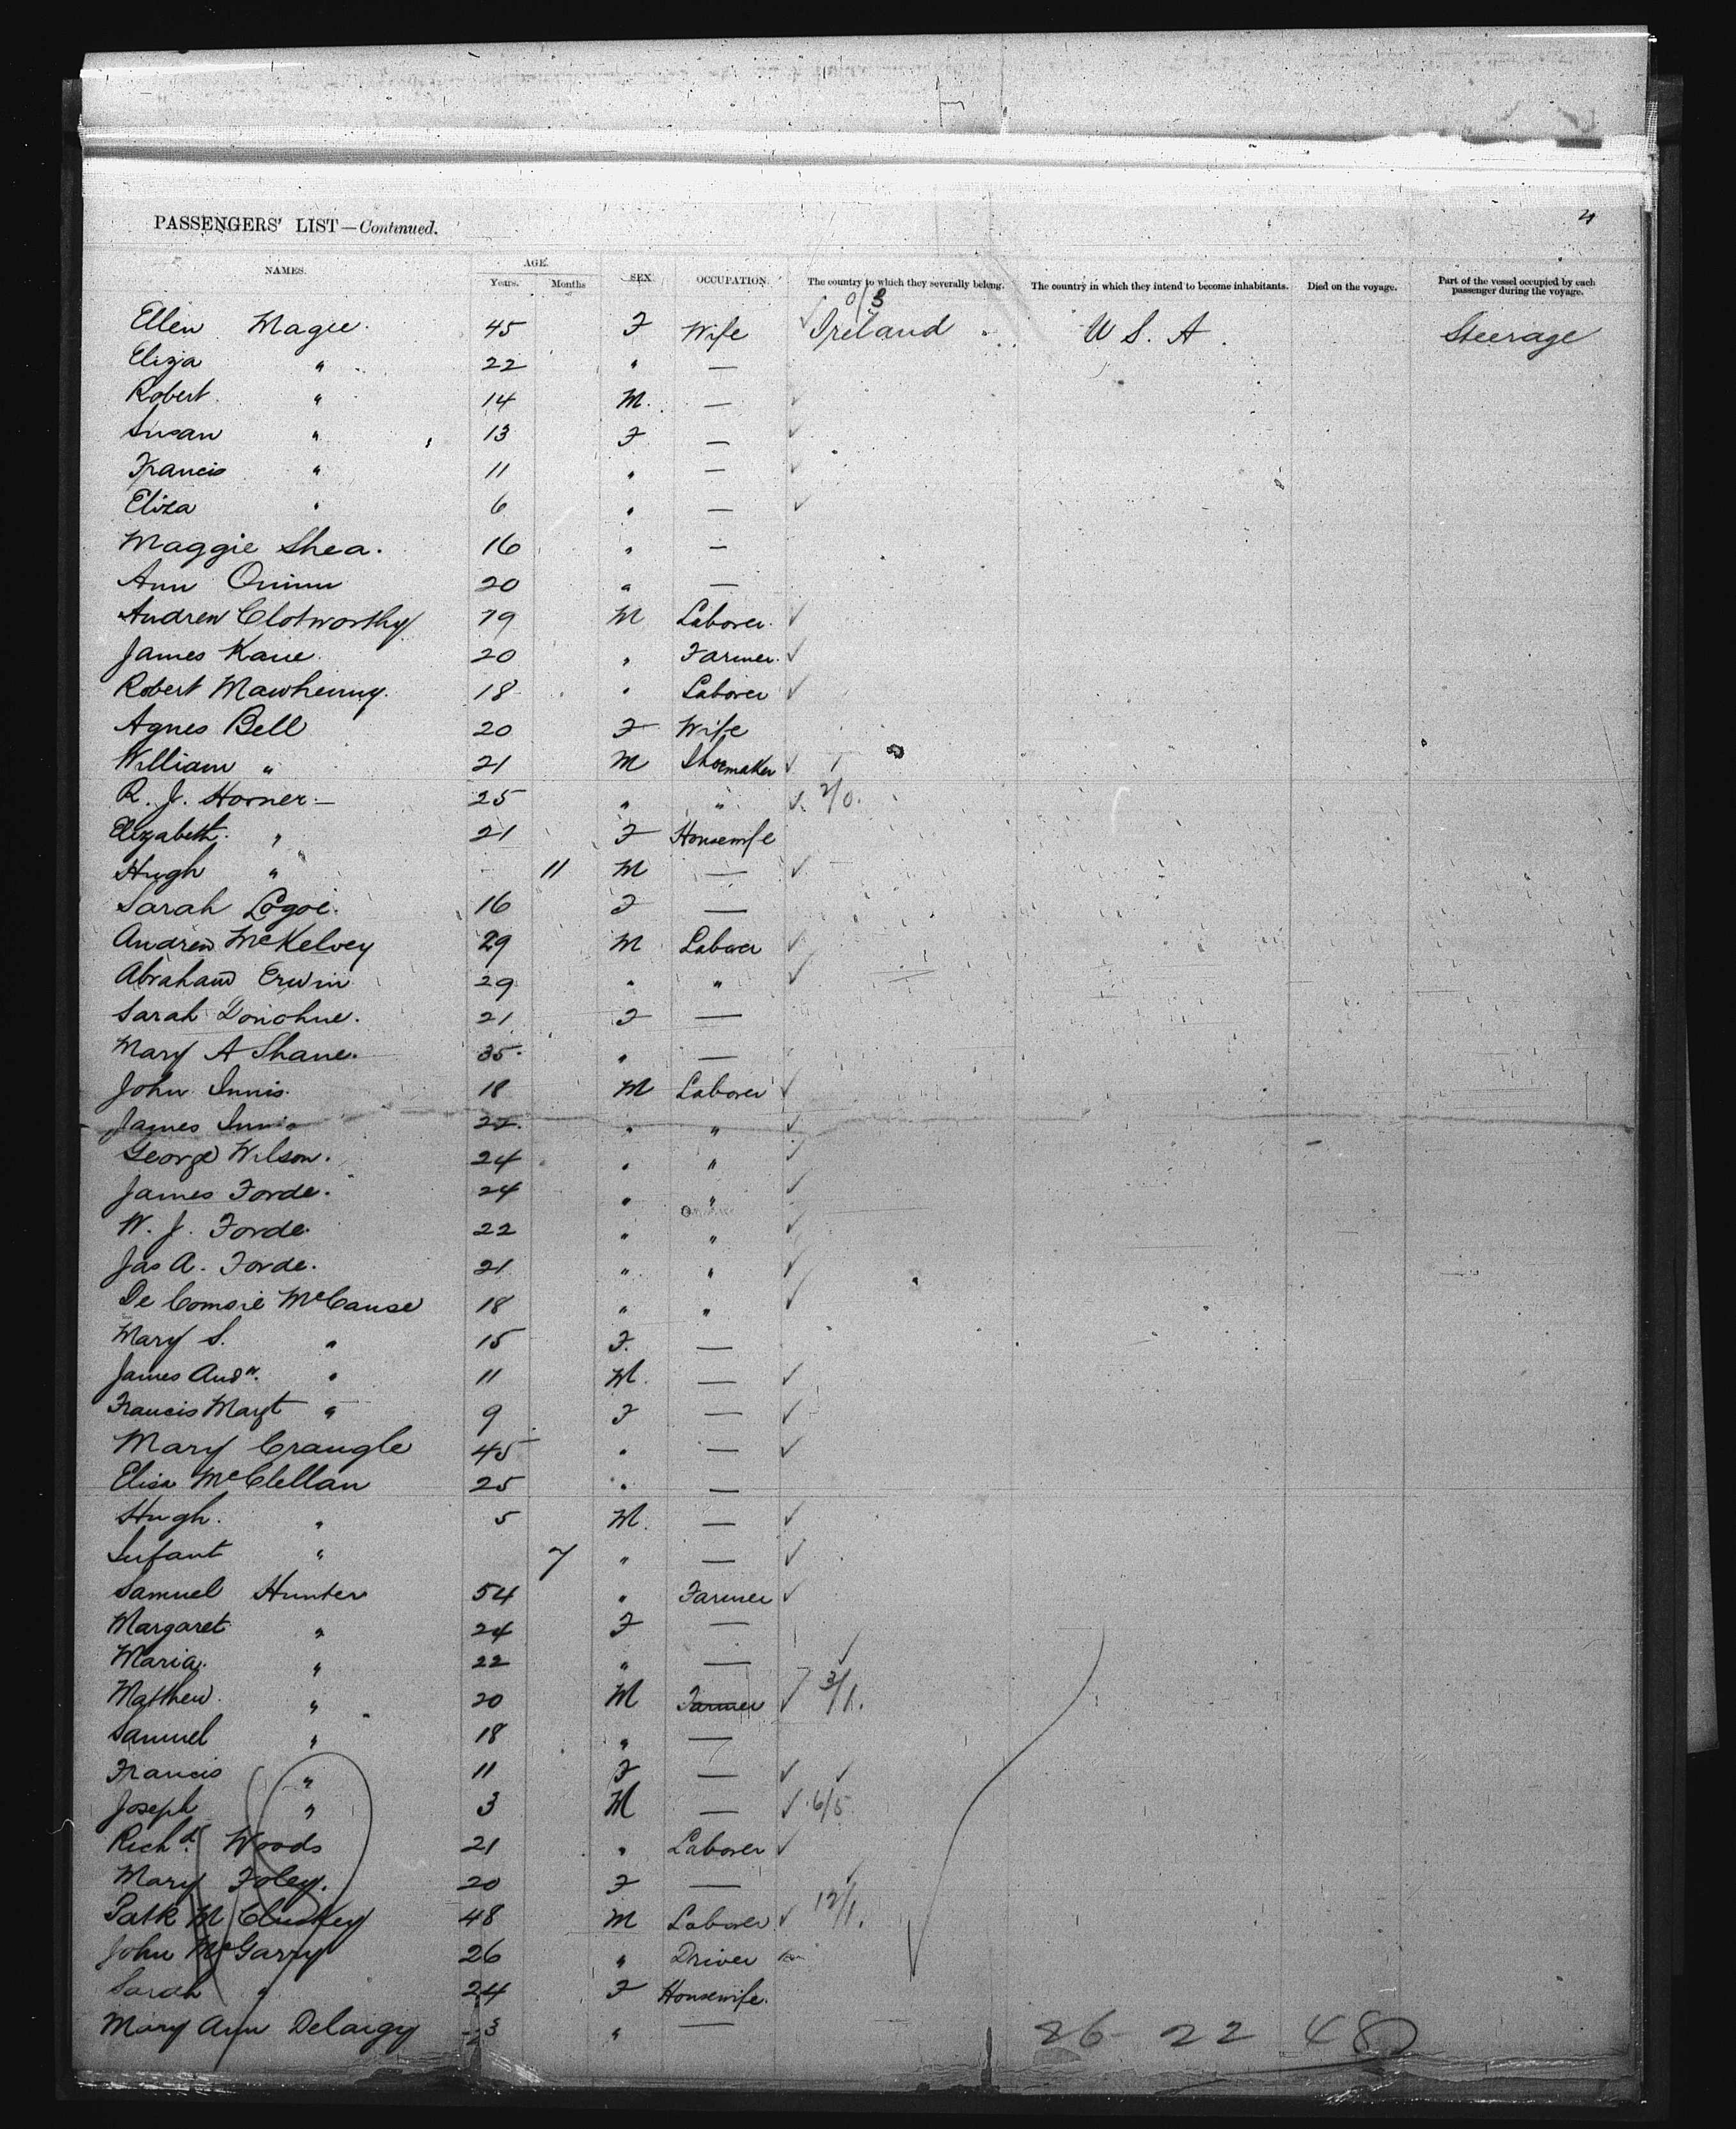 4
PASSENGERS' LIST—Continued.
NAMES. AGE. Years. Months SEX OCCUPATION. The country to which they severally belong. The country in which they intend to become inhabitants. Died on the voyage. Part of the vessel occupied by each passenger during the voyage.
0/3
Ellen Magee. 45 F Wife Ireland U S. A. Steerage
Eliza " 22 " —
Robert " 14 M. —
Susan " 13 F —
Francis " 11 " —
Eliza " 6 " —
Maggie Shea. 16 " —
Ann Quinn 20 " —
Andrew Clotworthy 19 M Laborer
James Kane. 20 " Farmer.
Robert Mawhenny. 18 " Laborer
Agnes Bell 20 F Wife
William " 21 M Shoemaker
R. J. Horner 25 " " 2/0.
Elizabeth " 21 F Housewife
Hugh " 11 M —
Sarah Logoe. 16 F —
Andrew McKelvey 29 M Laborer
Abraham Erwin 29 " "
Sarah Donohue. 21 F —
Mary A Shane. 35 " —
John Innis. 18 M Laborer
James Innis 22. " "
George Wilson. 24 " "
James Forde. 24 " "
W. J. Forde. 22 " "
Jas A. Forde. 21 " "
McCause 18 " "
Mary S. " 15 F. —
James Andw. " 11 M. —
Francis Margt " 9 F —
Mary Crangle 45 " —
Elisa McClellan 25 " —
Hugh. " 5 M. —
Infant " 7 " —
Samuel Hunter 54 " Farmer
Margaret " 24 F —
Maria. " 22 " —
Matthew. " 20 M Farmer 3/1.
Samuel " 18 " —
Francis " 11 F —
Joseph " 3 M — 6/5
Richd. Woods 21 " Laborer
Mary Foley. 20 F —
Patk McCluskey 48 M Laborer 12/1.
John McGarry 26 " Driver
Sarah " 24 F Housewife.
Mary Ann Delargy 23 " —
26 - 22 48